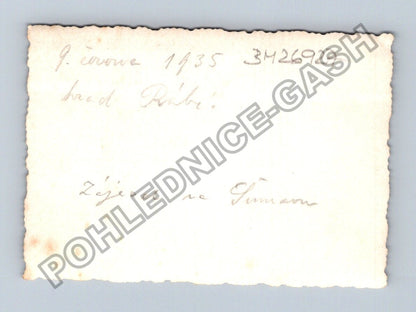 9. června 1935 3M26929
hrad Rábí.
Zájezd na Šumavu
POHLEDNICE-GASH